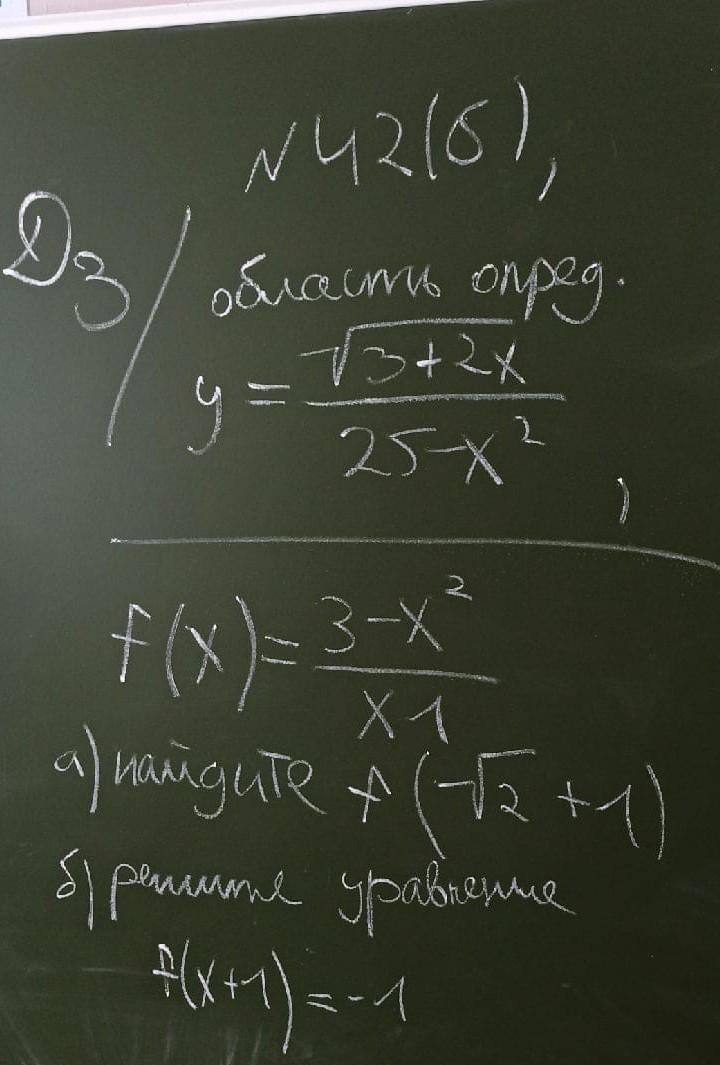 N 42(б),
Дз/ область опред.
y = √3+2x / 25-x²,
f(x) = 3-x² / x-1
а) найдите f(√2 +1)
б) решите уравнение
f(x+1) = -1